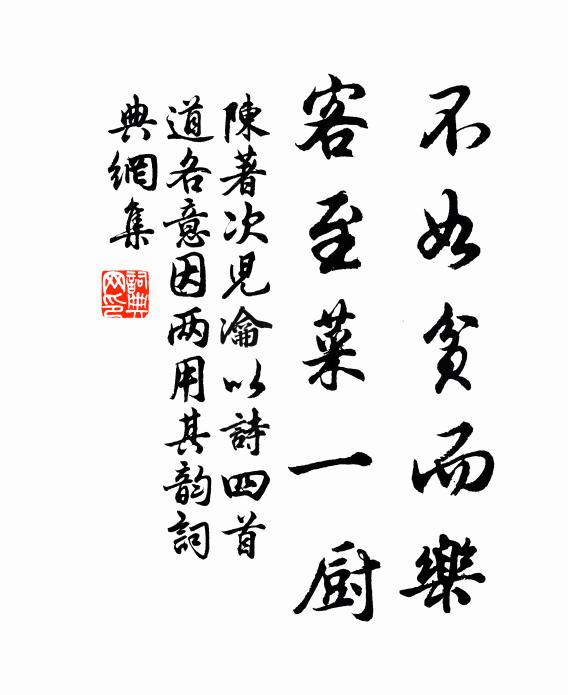 不如貧而樂
客至菜一厨
陳著次兒瀹以詩四首
道各意因两用其韵詞
典網集
詞典网印